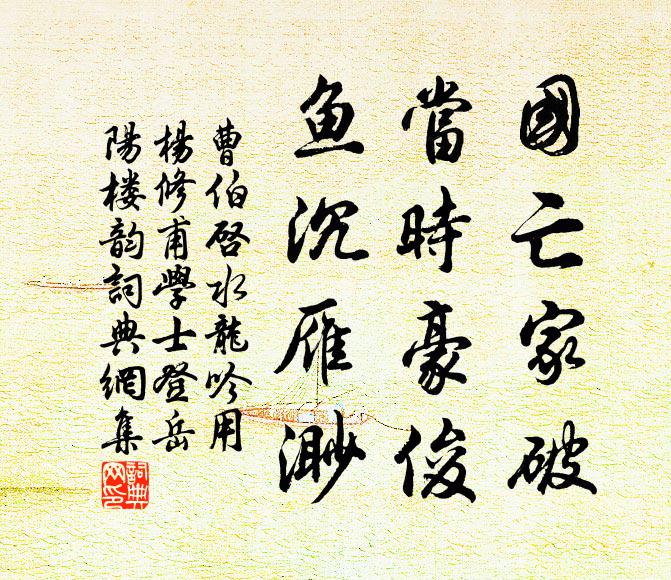 國亡家破
當時豪俊
魚沉雁渺
曹伯啓水龍吟用
楊修甫學士登岳
陽楼韵詞典網集
詞典网印